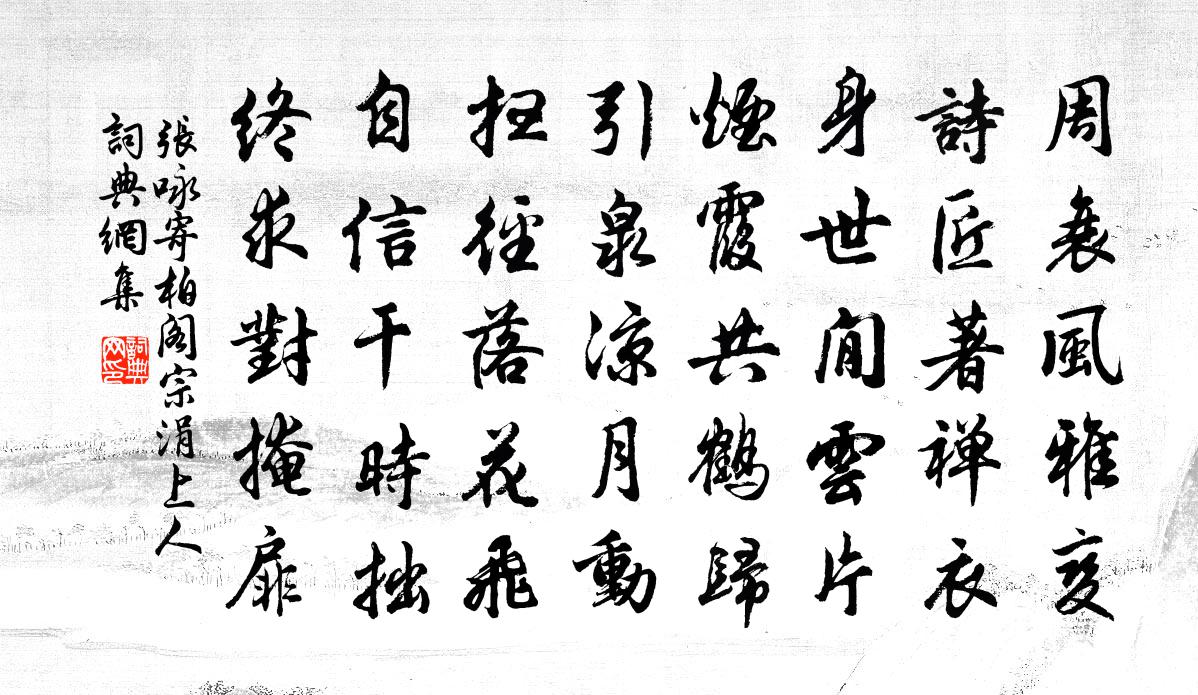 周衰風雅变
詩匠著禅衣
身世閒雲片
煙霞共鶴歸
引泉涼月動
扫徑落花飛
自信干時拙
終求對掩扉
張咏寄柏阁宗涓上人
詞典網集
詞典网印